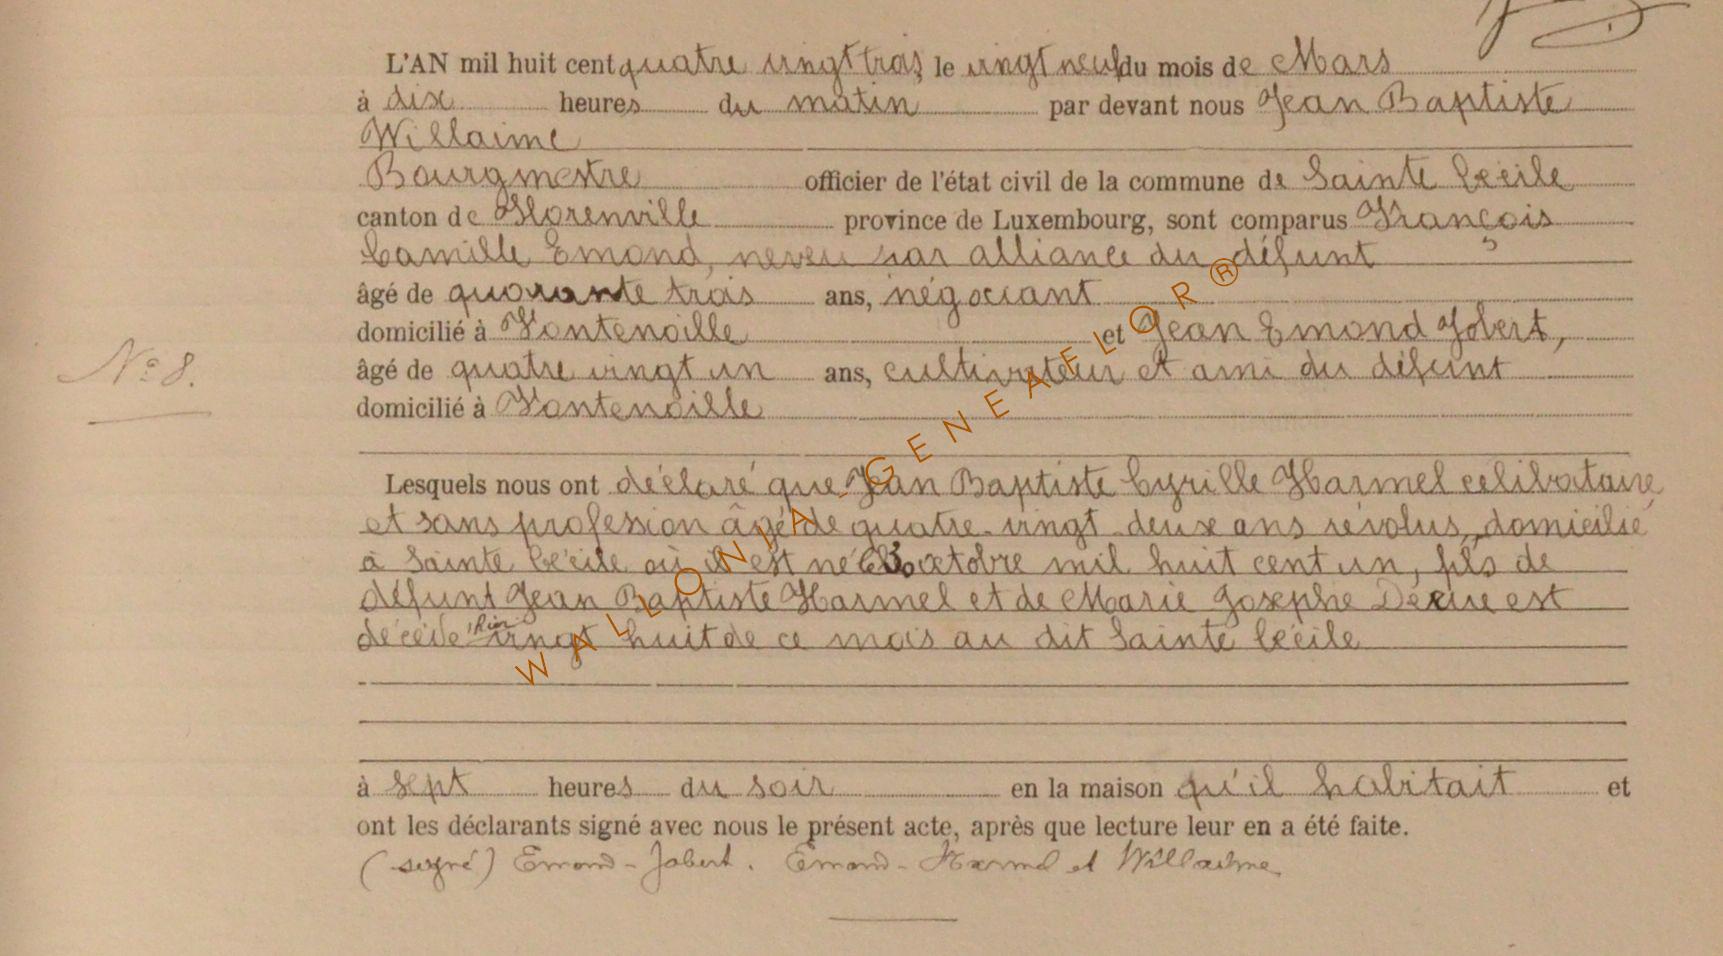 L'AN mil huit cent quatre vingt trois le vingt neuf du mois de Mars
à dix heures du matin par devant nous Jean Baptiste
Willaime
Bourgmestre officier de l'état civil de la commune de Sainte Cécile
canton de Florenville province de Luxembourg, sont comparus François
Camille Emond, neveu par alliance du défunt
âgé de quarante trois ans, négociant
domicilié à Fontenoille et Jean Emond Jobert,
N° 8.
âgé de quatre vingt un ans, cultivateur et ami du défunt
domicilié à Fontenoille
Lesquels nous ont déclaré que Jean Baptiste Cyrille Harmel célibataire
et sans profession âgé de quatre-vingt-deux ans révolus, domicilié
à Sainte Cécile où il est né octobre mil huit cent un, fils de
défunt Jean Baptiste Harmel et de Marie Josephe est
décédé hier vingt huit de ce mois au dit Sainte Cécile
à sept heures du soir en la maison qu'il habitait et
ont les déclarants signé avec nous le présent acte, après que lecture leur en a été faite.
(signé) Emond-Jobert. Emond-Harmel et Willaime
WALLONIA-GENEAFLOR®